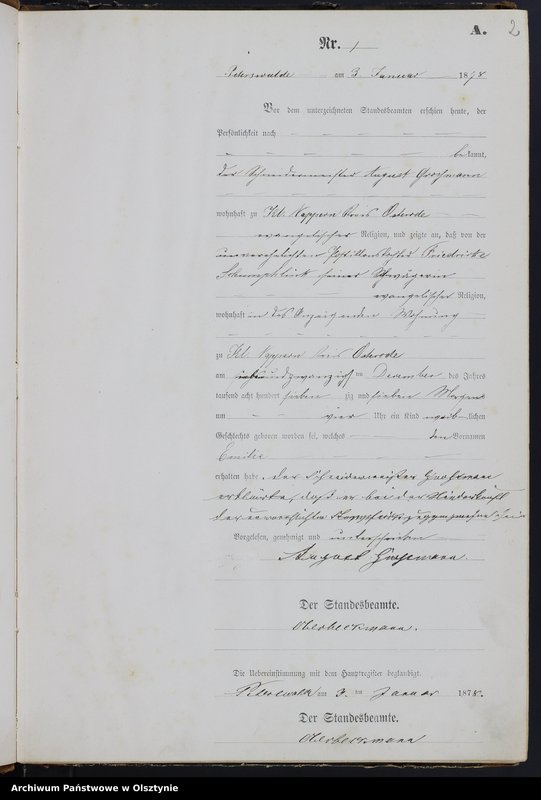 A. 2
Nr. 1
Peterswalde am 3 Januar 1878
Vor dem unterzeichneten Standesbeamten erschien heute, der
Persönlichkeit nach
bekannt,
der Schneidermeister August Grossmann
wohnhaft zu Kl. Nappern Kreis Osterode
evangelischer Religion, und zeigte an, daß von der
unverehelichten Friedricke
seiner Schwägerin
evangelischer Religion,
wohnhaft in des Anzeigenden Wohnung
zu Kl. Nappern Kreis Osterode
am siebenundzwanzigsten Dezember des Jahres
tausend acht hundert siebenzig und sieben Morgens
um vier Uhr ein Kind weiblichen
Geschlechts geboren worden sei, welches den Vornamen
Emilie
erhalten habe. der Schneidermeister Grossmann
erklärte, daß er bei der Niederkunft
der unverehelichten zugegen gewesen sei
Vorgelesen, genehmigt und unterschrieben
August Grossmann.
Der Standesbeamte.
Oberbeckmann.
Die Uebereinstimmung mit dem Hauptregister beglaubigt.
Peterswalde am 3. ten Januar 1878.
Der Standesbeamte.
Oberbeckmann
Archiwum Państwowe w Olsztynie